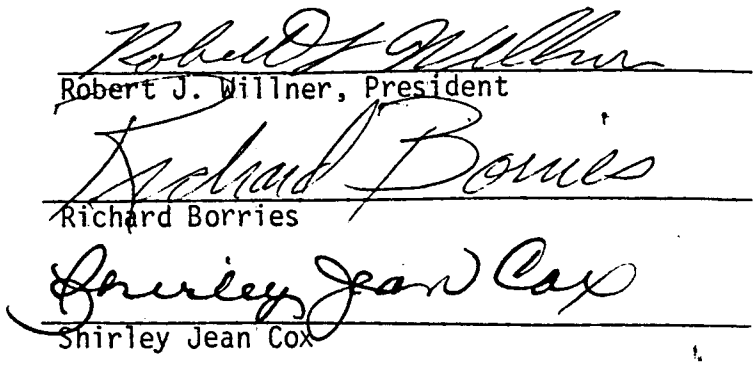 Robert J Willner
Robert J. Willner, President
Richard Borries
Richard Borries
Shirley Jean Cox
Shirley Jean Cox